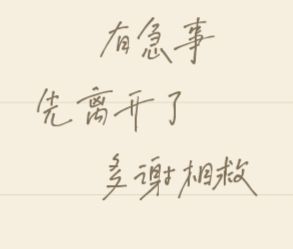 有急事
先离开了
多谢相救